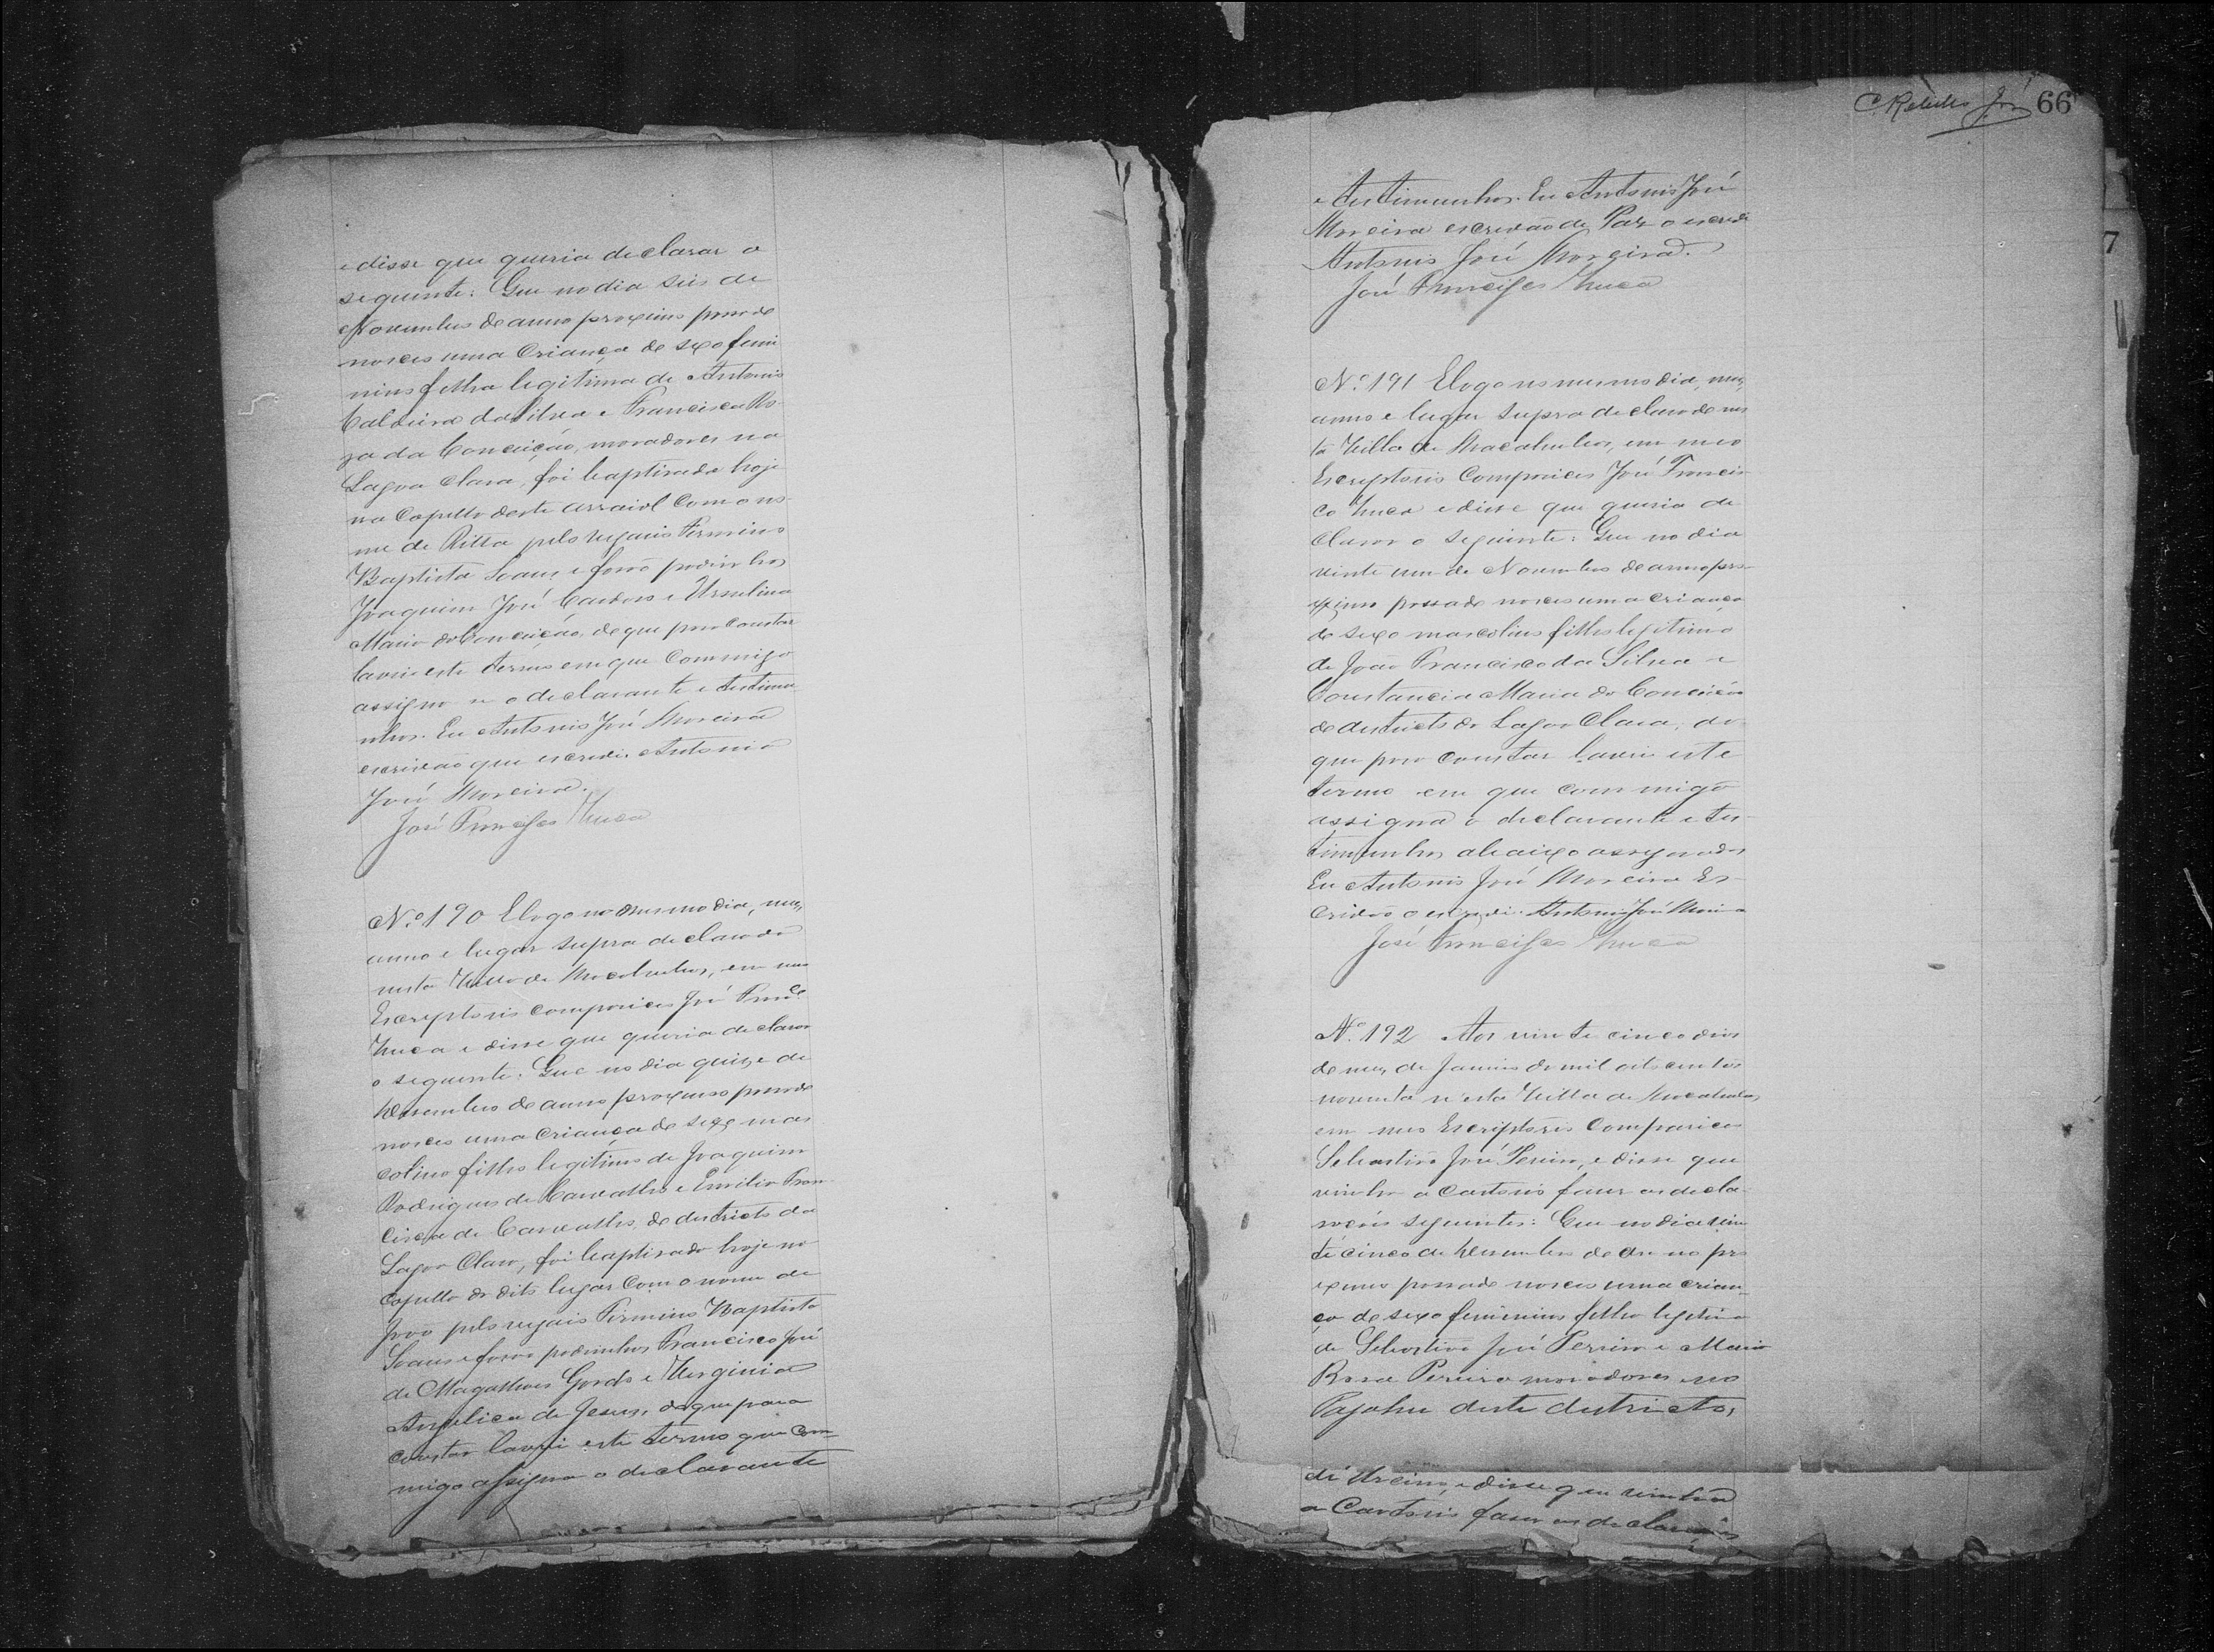 e disse que queria declarar o
seguinte: Que no dia seis de
Novembro do anno proximo passado
nasceu uma criança do sexo femi
nino filha legitima de Antonio
Caldeira da Silva e Francisca Ro-
za da Conceição, moradores na
Lagoa Clara, foi baptisada hoje
na Capella deste arraial com o no-
me de Ritta pelo vegario Firmino
Baptista Soares e forão padrinhos
Joaquim José Cardoso e Ursulina
Maria da Conceição, de que para constar
lavrei este termo em que commigo
assigna o declarante e testimu
nhas. Eu Antonio José Moreira
escrivão que escrevi. Antonio
José Moreira.
José Francisco
Nº 190 E logo no mesmo dia, mez,
anno e lugar supra declarado
nesta Villa de Macahubas, em meu
Escriptorio compareceu José Franc.co
e disse que queria declarar
o seguinte: Que no dia quinze de
Dezembro do anno proximo passado
nasceu uma criança do sexo mas
colino filho legitimo de Joaquim
Rodrigues de Carvalho e Emilia Fran
cisca de Carvalho, do destricto da
Lagoa Clara, foi baptisado hoje na
Capella do dito lugar com o nome de
João pelo vegario Firmino Baptista
Soares e forão padrinhos Francisco José
de Magalhaes Gordo e Verginia
Angelica de Jesus, do que para
constar lavrei este termo que com
migo assigna o declarante
C. José 66
e testimunhas. Eu Antonio José
Moreira escrivão de Paz o escrevi
Antonio José Moreira.
José Francisco
Nº 191 E logo no mesmo dia, mez,
anno e lugar supra declarado nes
ta Villa de Macahubas, em meu
Escriptorio Compareceu José Francis
co e disse que queria de
clarar o seguinte: Que no dia
vinte um de Novembro do anno pro-
ximo passado nasceu uma criança
do sexo mascolino filho legitimo
de João Francisco da Silva e
Constancia Maria da Conceição
do destricto da Lagoa Clara, do
que para constar lavrei este
termo em que commigo
assigna o declarante e tes-
timunhas abaixo assignados
Eu Antonio José Moreira Es-
crivão o escrevi. Antonio José Moreira
José Francisco
Nº 192 Aos vinte cinco dias
do mez de Janeiro de mil oitocentos
noventa nesta Villa de Macahubas,
em meu Escriptorio Compareceu
Sebastião José Pereira, e disse que
vinha a Cartorio fazer as decla-
rações seguintes: Que no dia vin
te cinco de Dezembro do anno pro
ximo passado nasceu uma crian-
ça do sexo feminino filha legitima
de Sebastião José Pereira e Maria
Rosa Pereira moradores no
Pajahu deste destricto,
e disse que vinha
a Cartorio faser as declarações